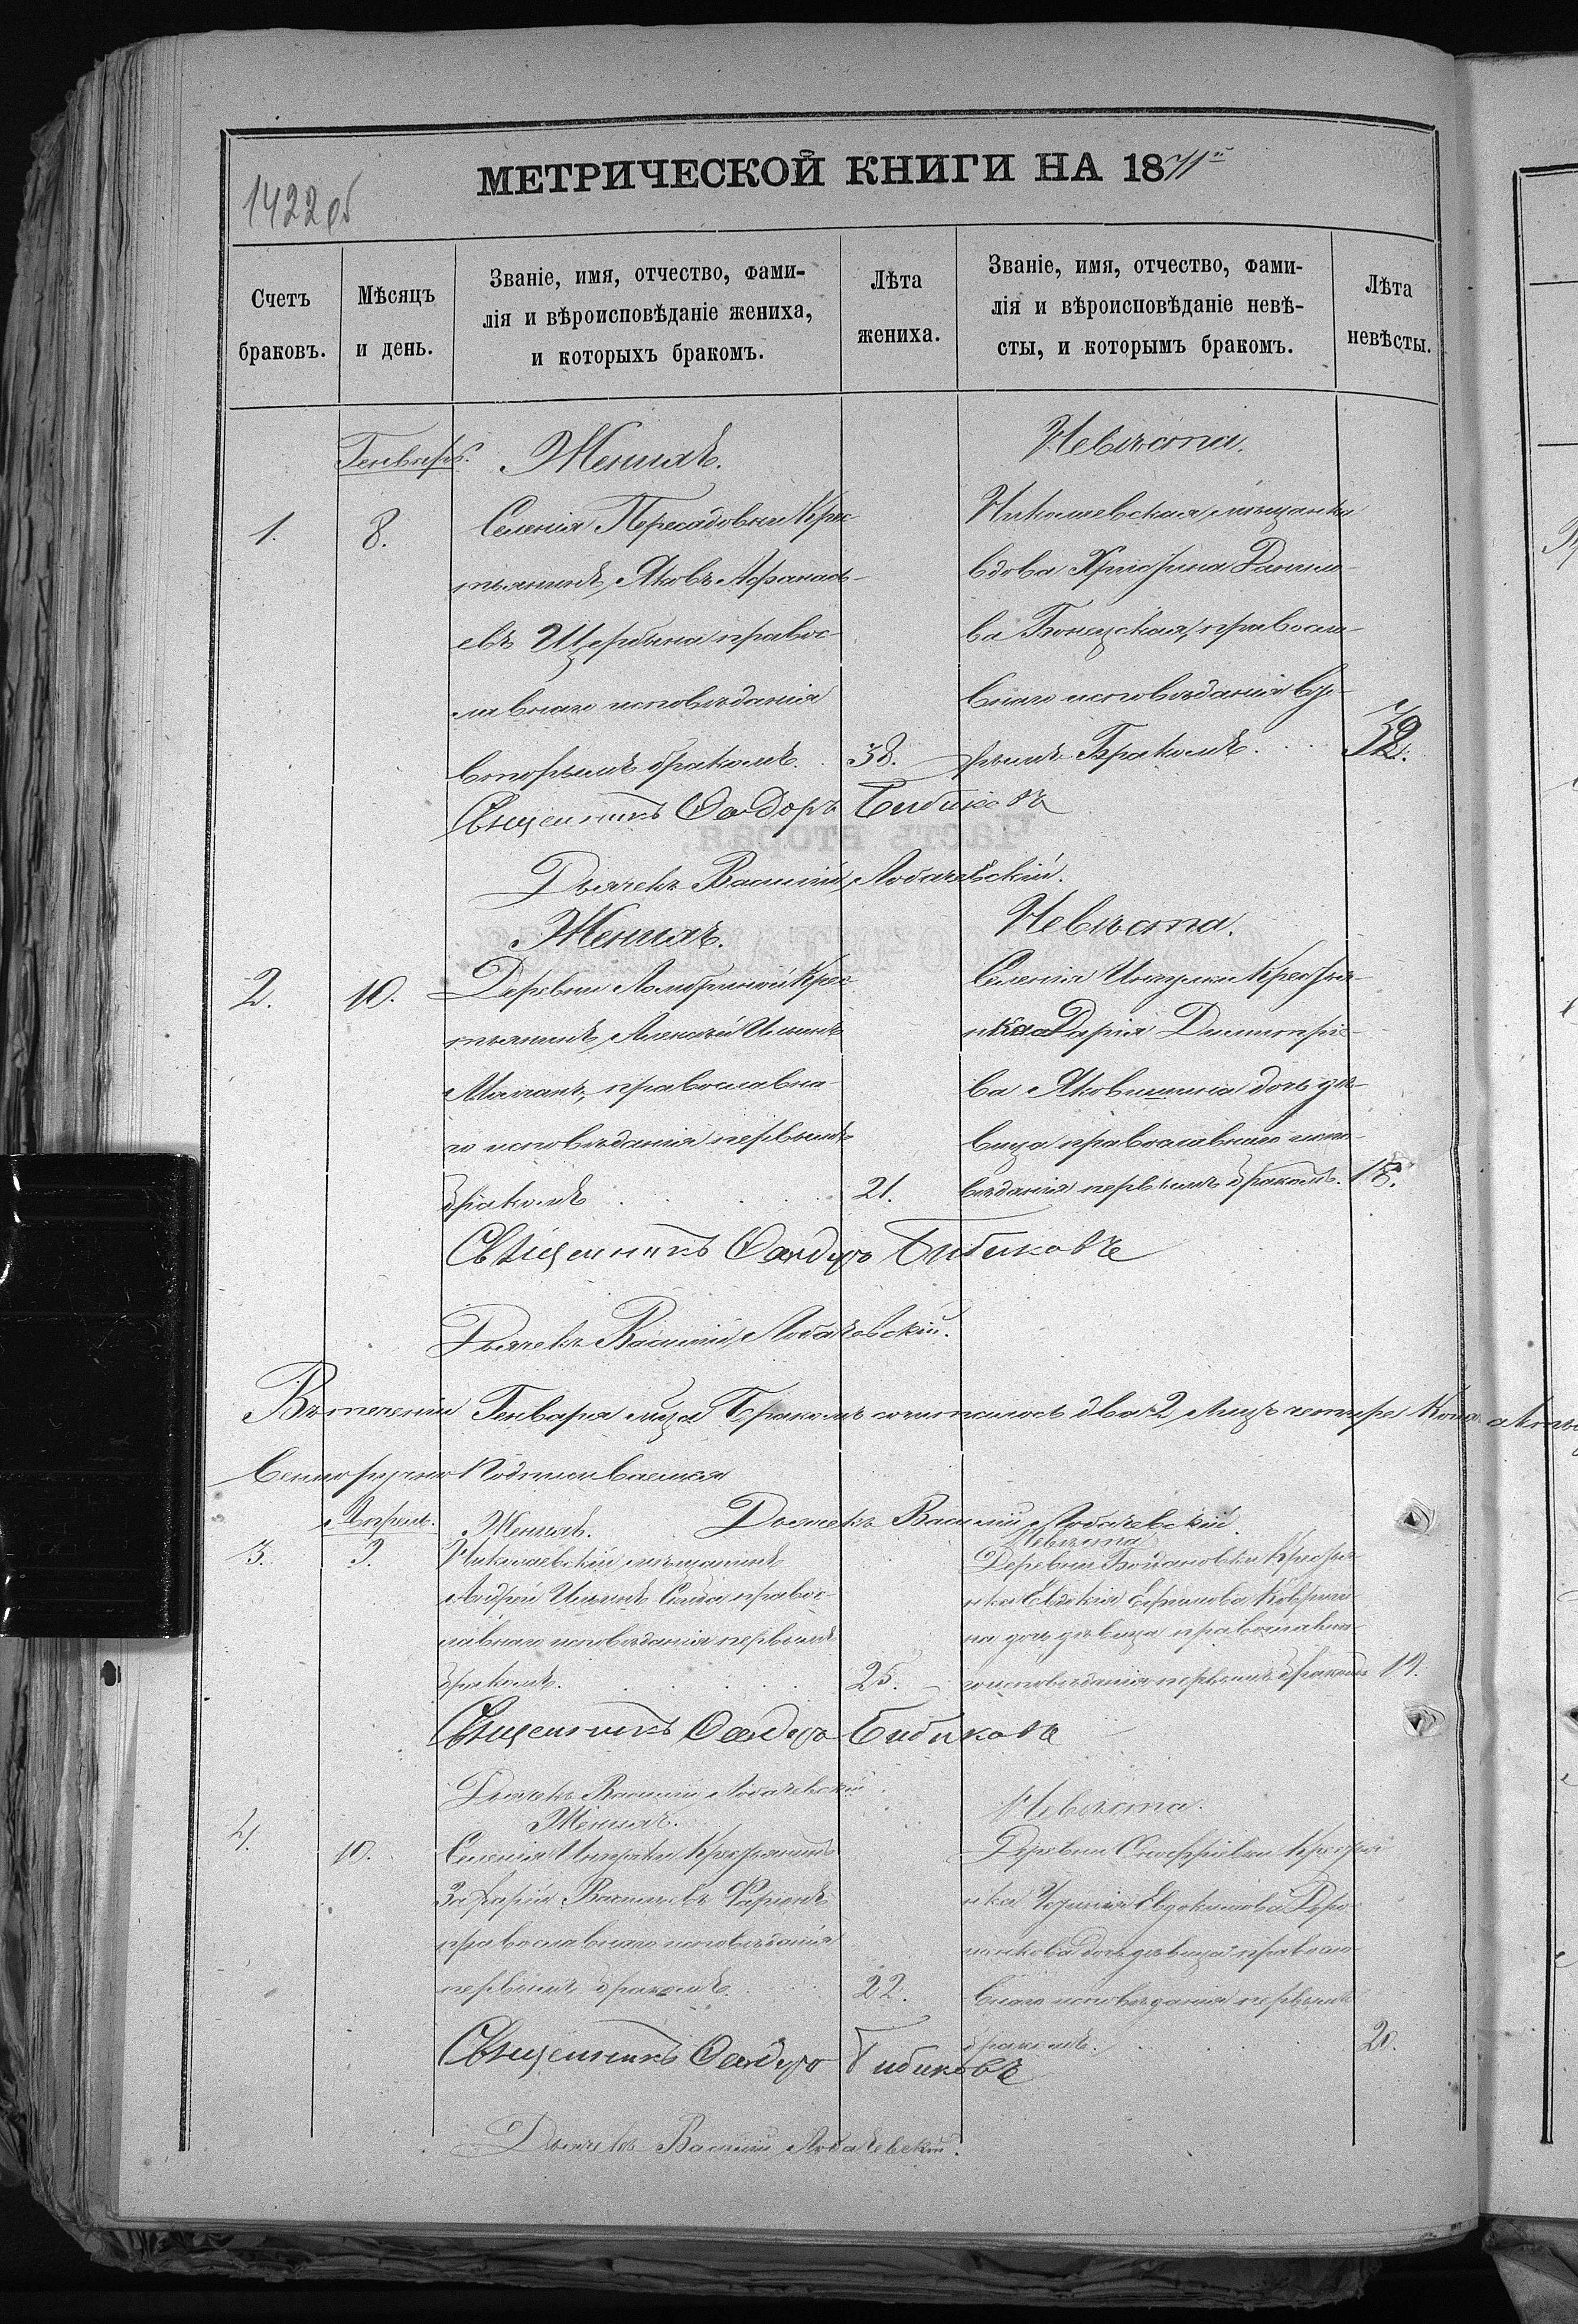 1422об
МЕТРИЧЕСКОЙ КНИГИ НА 18
Счетъ браковъ.
Мѣсяцъ и день.
Званіе, имя, отчество, фами-
лія и вѣроисповѣданіе жениха,
и которыхъ бракомъ.
Лѣта жениха.
Званіе, имя, отчество, фами-
лія и вѣроисповѣданіе невѣ-
сты, и которымъ бракомъ.
Лѣта невѣсты.
Генварь.
Женихъ.
1.
8.
Селенія Пересадовки Крес-
тьянинъ, Яковъ Афанась-
евъ Щербина правос-
лавнаго исповѣданія
вторымъ бракомъ.
38.
Невѣста.
Николаевская мѣщанка
вдова Христина Данило-
ва Бонецская, правосла-
внаго исповѣданія вто-
рымъ Бракомъ.
Священникъ Ѳеодоръ Бибиковъ
Дьячекъ Василій Лобачевскій.
Женихъ.
2.
10.
Деревни Крес-
тьянинъ, Алексѣй Ильинъ
православна-
го исповѣданія первымъ
бракомъ
21.
Невѣста.
Селенія Ингулки Крестья-
нка Дарія Димитріе-
ва дочь дѣ-
вица православнаго испо-
вѣданія первымъ бракомъ.
18.
Священникъ Ѳеодоръ Бибиковъ
Дьячекъ Василій Лобачевскій.
Въ теченіи Генваря мца Бракомъ сочиталось два 2, лицъ четыре
подписываемся
Дьячекъ Василій Лобачевскій.
Апрель.
Женихъ.
3.
Николаевскій мѣщанинъ
Андрей Ильинъ правос-
лавнаго исповѣданія первымъ
бракомъ.
25.
Невѣста
Деревни Богдановки Крестья-
нка Евдокія Ефимова
дочь дѣвица православна-
го исповѣданія первымъ бракомъ
19.
Священникъ Ѳеодоръ Бибиковъ
Дьячекъ Василій Лобачевскій.
Женихъ.
4.
10.
Селенія Ингулки Крестьянинъ
Захарій Васильевъ
православнаго исповѣданія
первымъ бракомъ.
22.
Невѣста.
Деревни Крестья-
нка Евдокимова
дочь дѣвица правосла-
внаго исповѣданія первымъ
бракомъ.
20.
Священникъ Ѳеодоръ Бибиковъ
Дьячекъ Василій Лобачевскій.